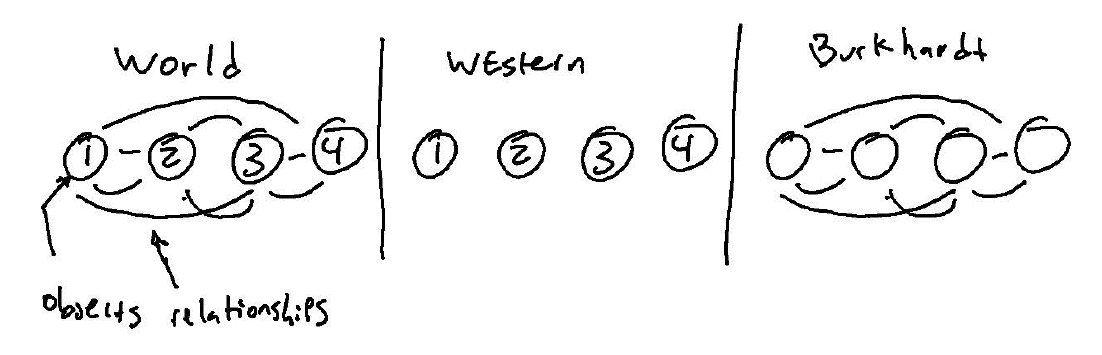 World
1 2 3 4
objects relationships
WEstern
1 2 3 4
Burkhardt